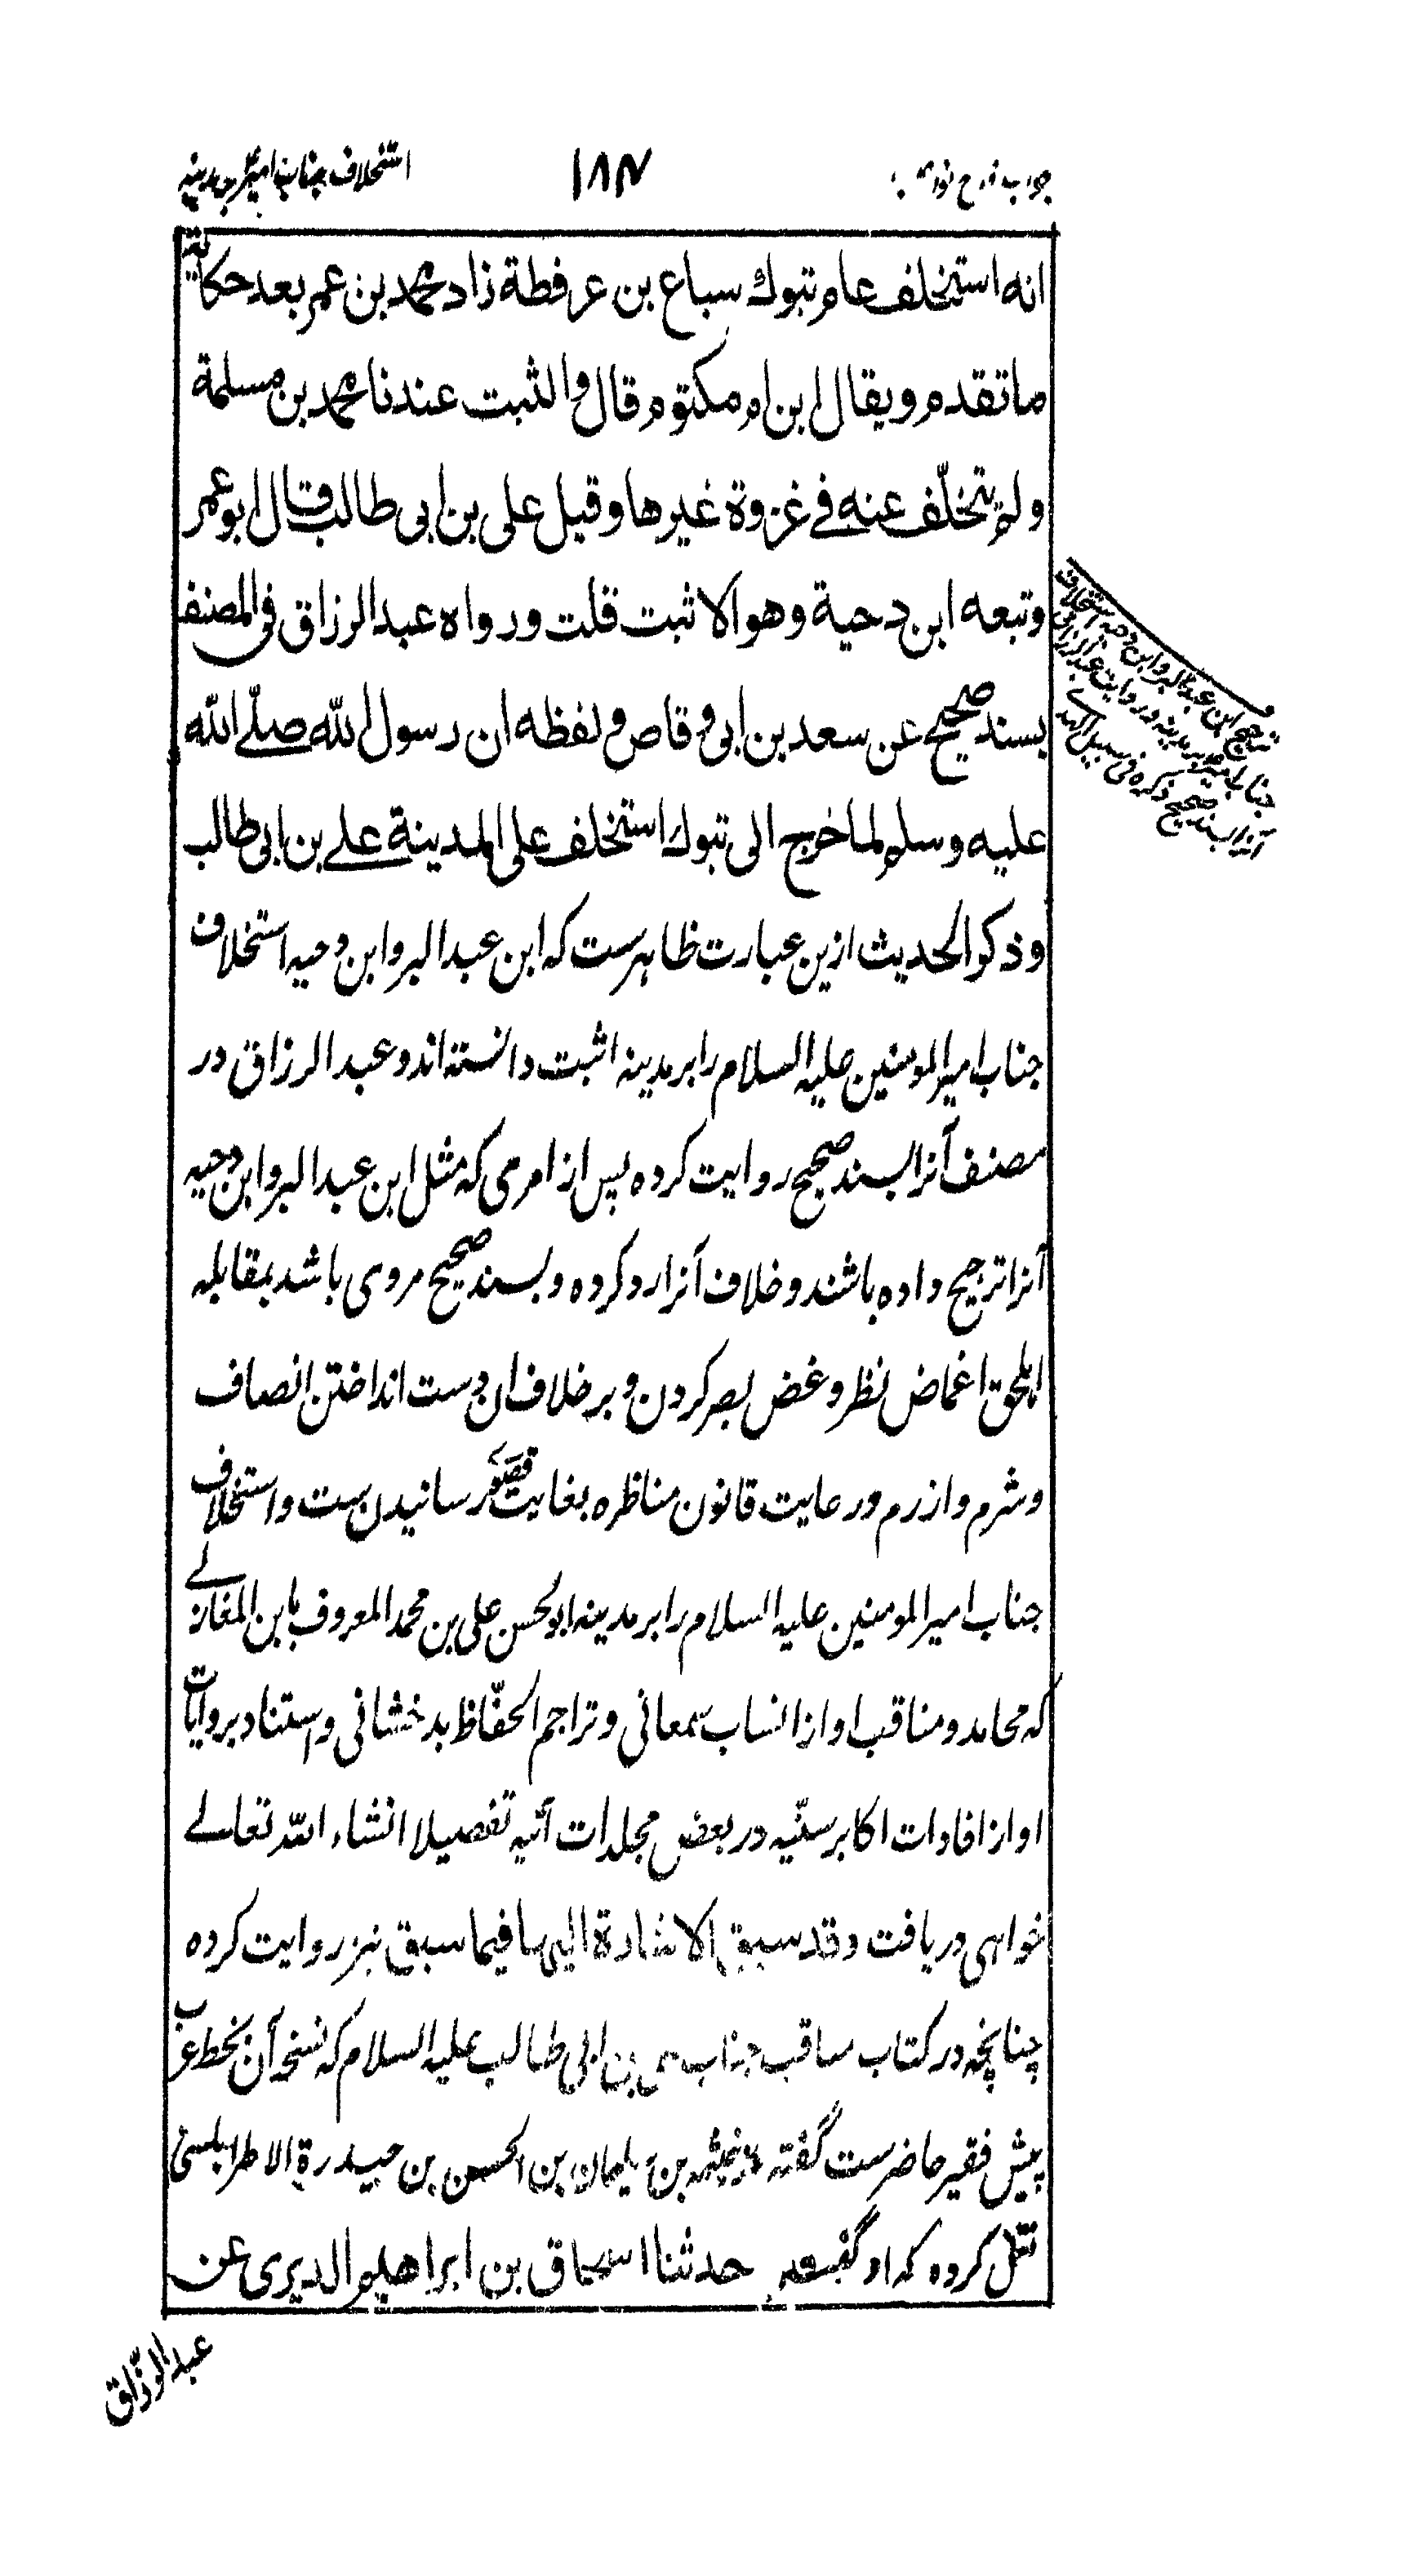 استخلاف جناب امیرؑ بر مدینه
۱۸۴
جواب
انه استخلف عام تبوك سباع بن عرفطة زاد محمد بن عمر بعد حكاية
ما تقدم ويقال ابن ام مكتوم قال والثبت عندنا محمد بن مسلمة
ولم يتخلّف عنه في غزوة غيرها وقيل على بن ابى طالب قال ابو عمر
وتبعه ابن دحية وهو الاثبت قلت ورواه عبد الرزاق فى المصنف
بسند صحيح عن سعد بن ابى وقاص ولفظه ان رسول الله صلّے الله
عليه وسلم لما خرج الى تبوك استخلف على المدينة علے بن ابى طالب
وذكر الحديث ازین عبارت ظاهرست که ابن عبد البر و ابن دحیه استخلاف
جناب امیر المومنین علیه السلام را بر مدینه اثبت دانسته اند و عبد الرزاق در
مصنف آنرا بسند صحیح روایت کرده پس از امری که مثل ابن عبد البر و ابن دحیه
آنرا ترجیح داده باشند و خلاف آنرا رد کرده و بسند صحیح مروی باشد بمقابله
اهلحق اغماض نظر و غض بصر کردن و بر خلاف ان دست انداختن انصاف
و شرم و ازرم و رعایت قانون مناظره بغایت قصوٰے رسانیدن ست و استخلاف
جناب امیر المومنین علیه السلام را بر مدینه ابو الحسن علی بن محمد المعروف بابن المغازلے
که محامد و مناقب او از انساب سمعانی و تراجم الحفّاظ بدخشانی و استناد بروایات
او از افادات اکابر سنّیه در بعض مجلدات آتیه تفصیلا انشاء الله تعالے
خواهی دریافت وقد سبق الاشارة الیها فیما سبق نیز روایت کرده
چنانچه در کتاب مناقب جناب علی بن ابی طالب علیه السلام که نسخه آن بخط عرب
پیش فقیر حاضرست گفته بن سلیمان بن الحسن بن حیدرة الاطرابلسی
نقل کرده که او گفته حدثنا اسحاق بن ابراهيم الديرى عن
عبد الرزّاق
ترجیح ابن عبد البر و ابن دحیه استخلاف
جناب امیرؑ بر مدینه و روایت عبد الرزاق
آنرا بسند صحیح ذکره فی سبیل الهدے